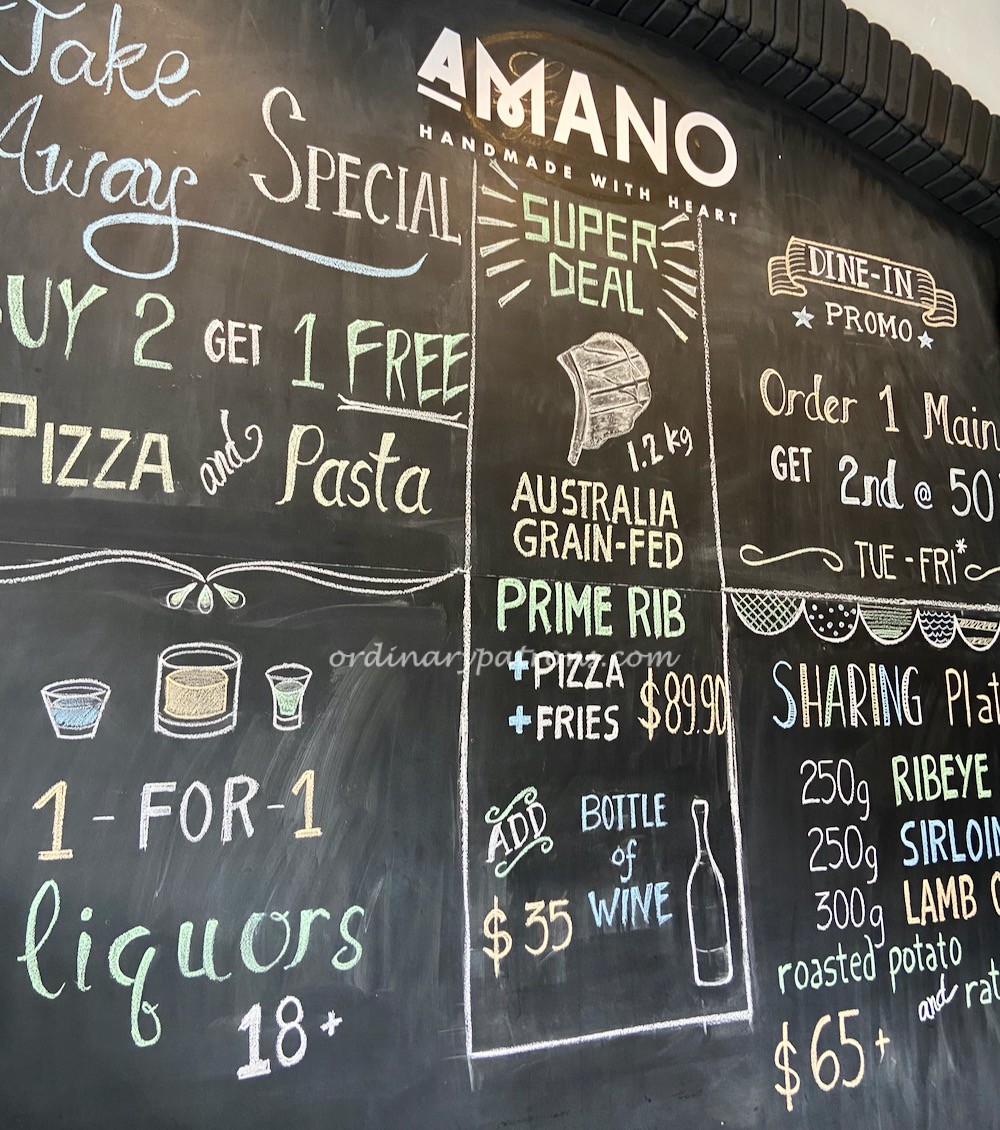 Take
Away
SPECIAL
UY 2 GET 1 FREE
PIZZA and Pasta
1-FOR-1
liquors
18+
AMANO
HANDMADE WITH HEART
SUPER
DEAL
1.2 kg
AUSTRALIA
GRAIN-FED
PRIME RIB
+PIZZA
+FRIES $89.90
ADD BOTTLE
of
WINE
$35
ordinarypatrons.com
DINE-IN
PROMO
Order 1 Main
GET 2nd @ 50
TUE - FRI*
SHARING Plat
250g RIBEYE
250g SIRLOIN
300g LAMB
roasted potato
and rat
$65+